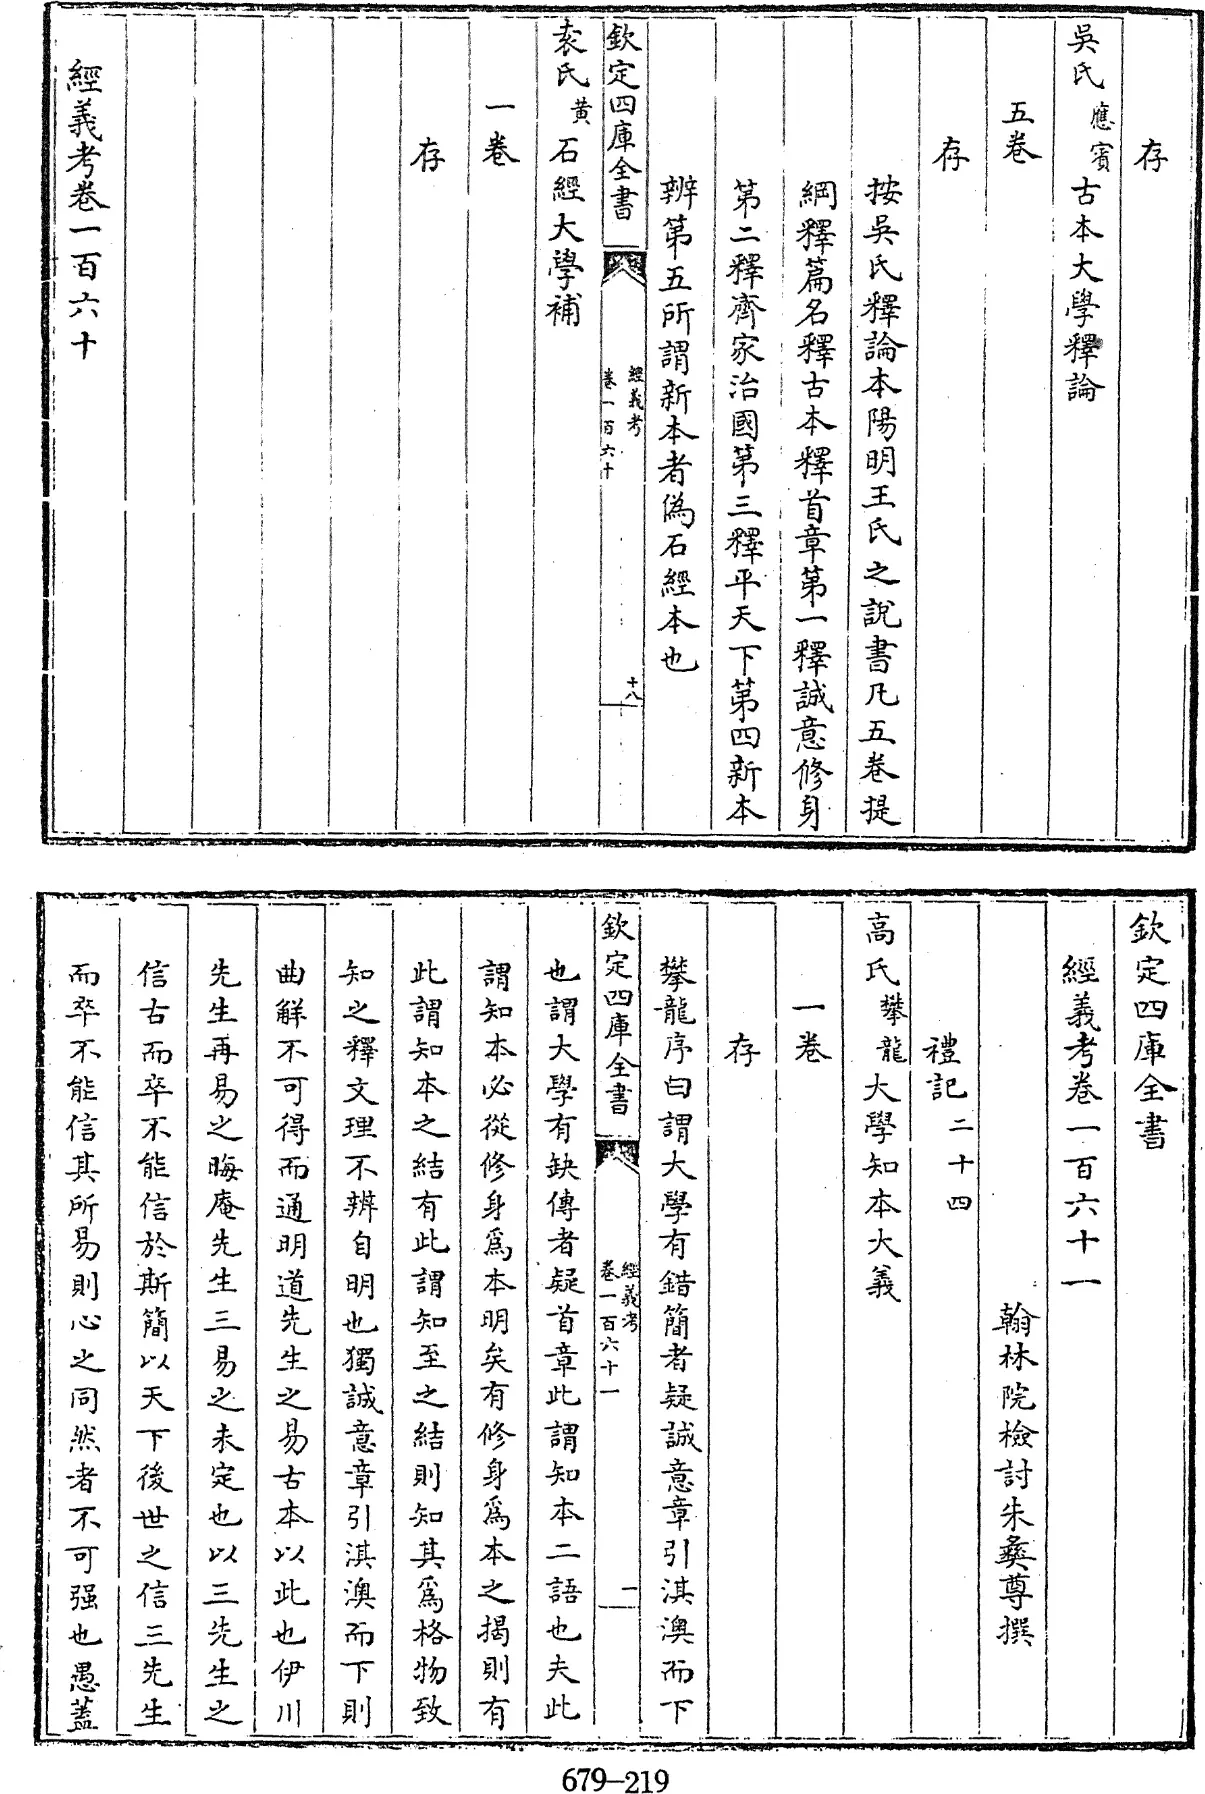 存
吳氏應賓古本大學釋論
五卷
存
按吳氏釋論本陽明王氏之說書凡五卷提
綱釋篇名釋古本釋首章第一釋誠意修身
第二釋齊家治國第三釋平天下第四新本
辨第五所謂新本者偽石經本也
欽定四庫全書
經義考
卷一百六十
十八
袁氏黃石經大學補
一卷
存
經義考卷一百六十
欽定四庫全書
經義考卷一百六十一
翰林院檢討朱彝尊撰
禮記二十四
高氏攀龍大學知本大義
一卷
存
攀龍序曰謂大學有錯簡者疑誠意章引淇澳而下
欽定四庫全書
經義考
卷一百六十一
一
也謂大學有缺傳者疑首章此謂知本二語也夫此
謂知本必從修身爲本明矣有修身爲本之揭則有
此謂知本之結有此謂知至之結則知其爲格物致
知之釋文理不辨自明也獨誠意章引淇澳而下則
曲解不可得而通明道先生之易古本以此也伊川
先生再易之晦庵先生三易之未定也以三先生之
信古而卒不能信於斯簡以天下後世之信三先生
而卒不能信其所易則心之同然者不可强也愚蓋
679-219